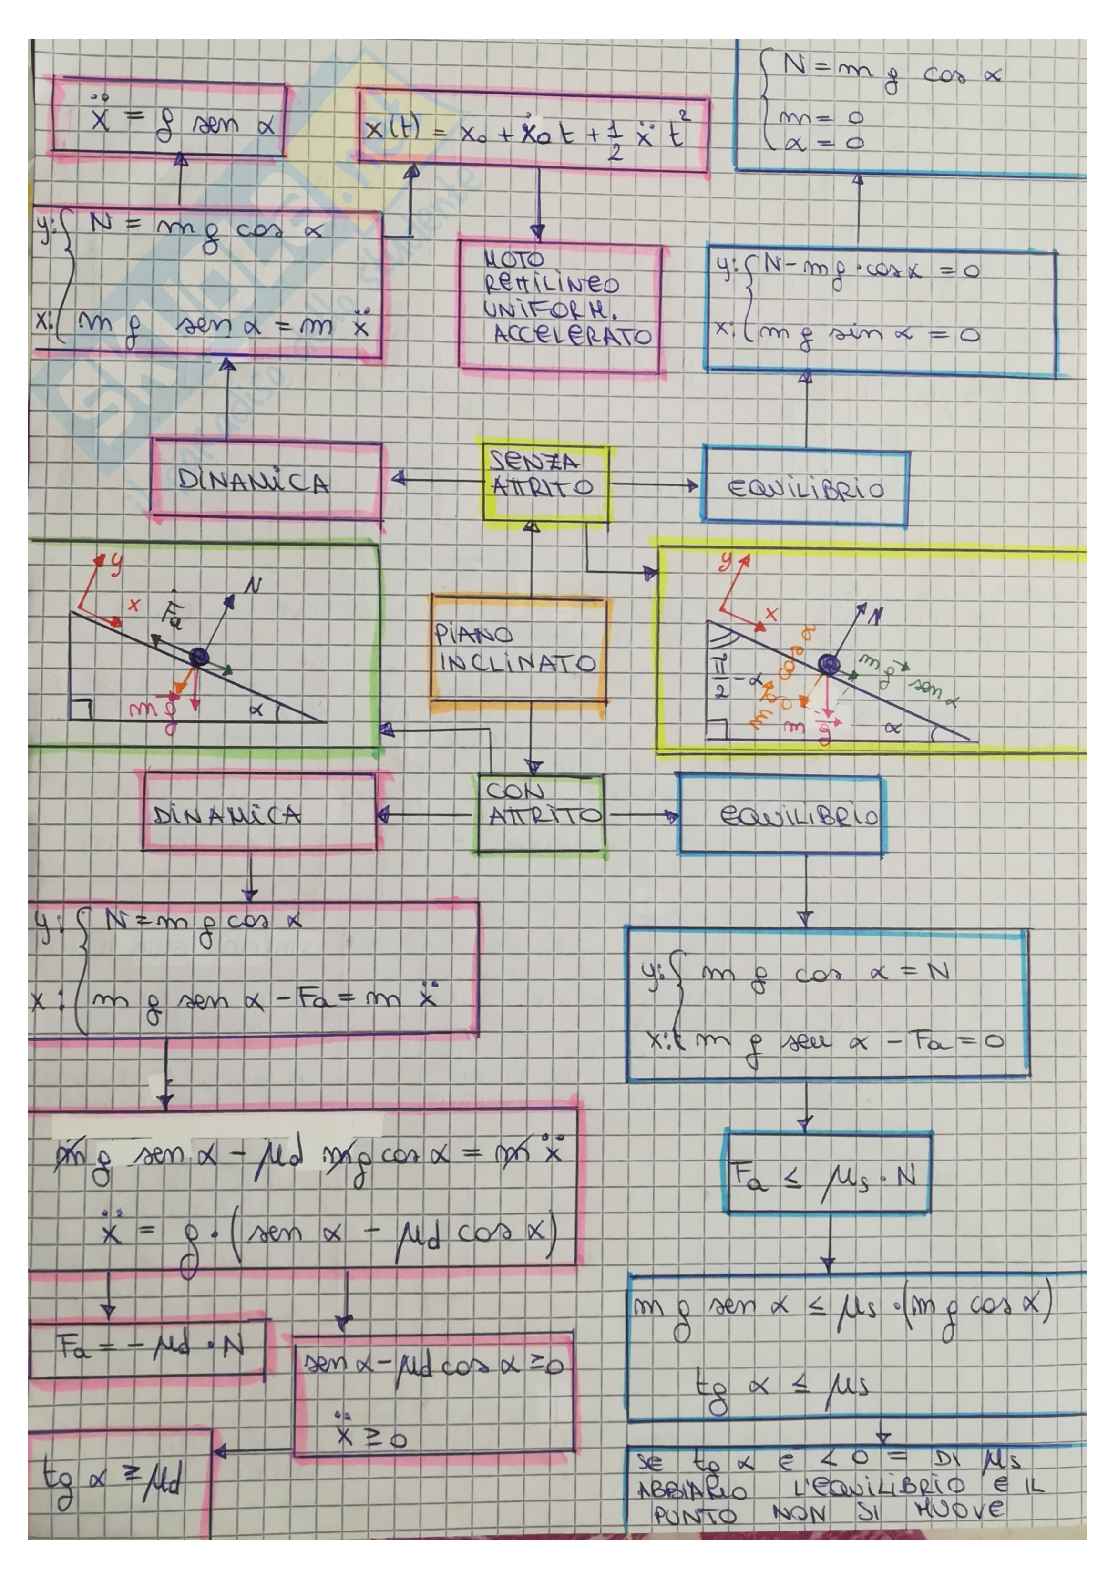 N = m g cos α
m = 0
α = 0
ẍ = g sen α
x(t) = x₀ + ẋ₀ t + 1/2 ẍ t²
y: N = m g cos α
x: m g sen α = m ẍ
MOTO
RETTILINEO
UNIFORM.
ACCELERATO
y: N - m g · cos α = 0
x: m g sin α = 0
DINAMICA
SENZA
ATTRITO
EQUILIBRIO
y
x
Fa
N
m g
α
PIANO
INCLINATO
y
x
N
π/2 - α
m g cos α
m g sen α
m g
α
DINAMICA
CON
ATTRITO
EQUILIBRIO
y: N = m g cos α
x: m g sen α - Fa = m ẍ
y: m g cos α = N
x: m g sen α - Fa = 0
m g sen α - μd m g cos α = m ẍ
ẍ = g · (sen α - μd cos α)
Fa ≤ μs · N
Fa = - μd · N
sen α - μd cos α ≥ 0
ẍ ≥ 0
tg α ≥ μd
m g sen α ≤ μs · (m g cos α)
tg α ≤ μs
SE tg α E < O = DI μs
ABBIAMO L'EQUILIBRIO E IL
PUNTO NON SI MUOVE